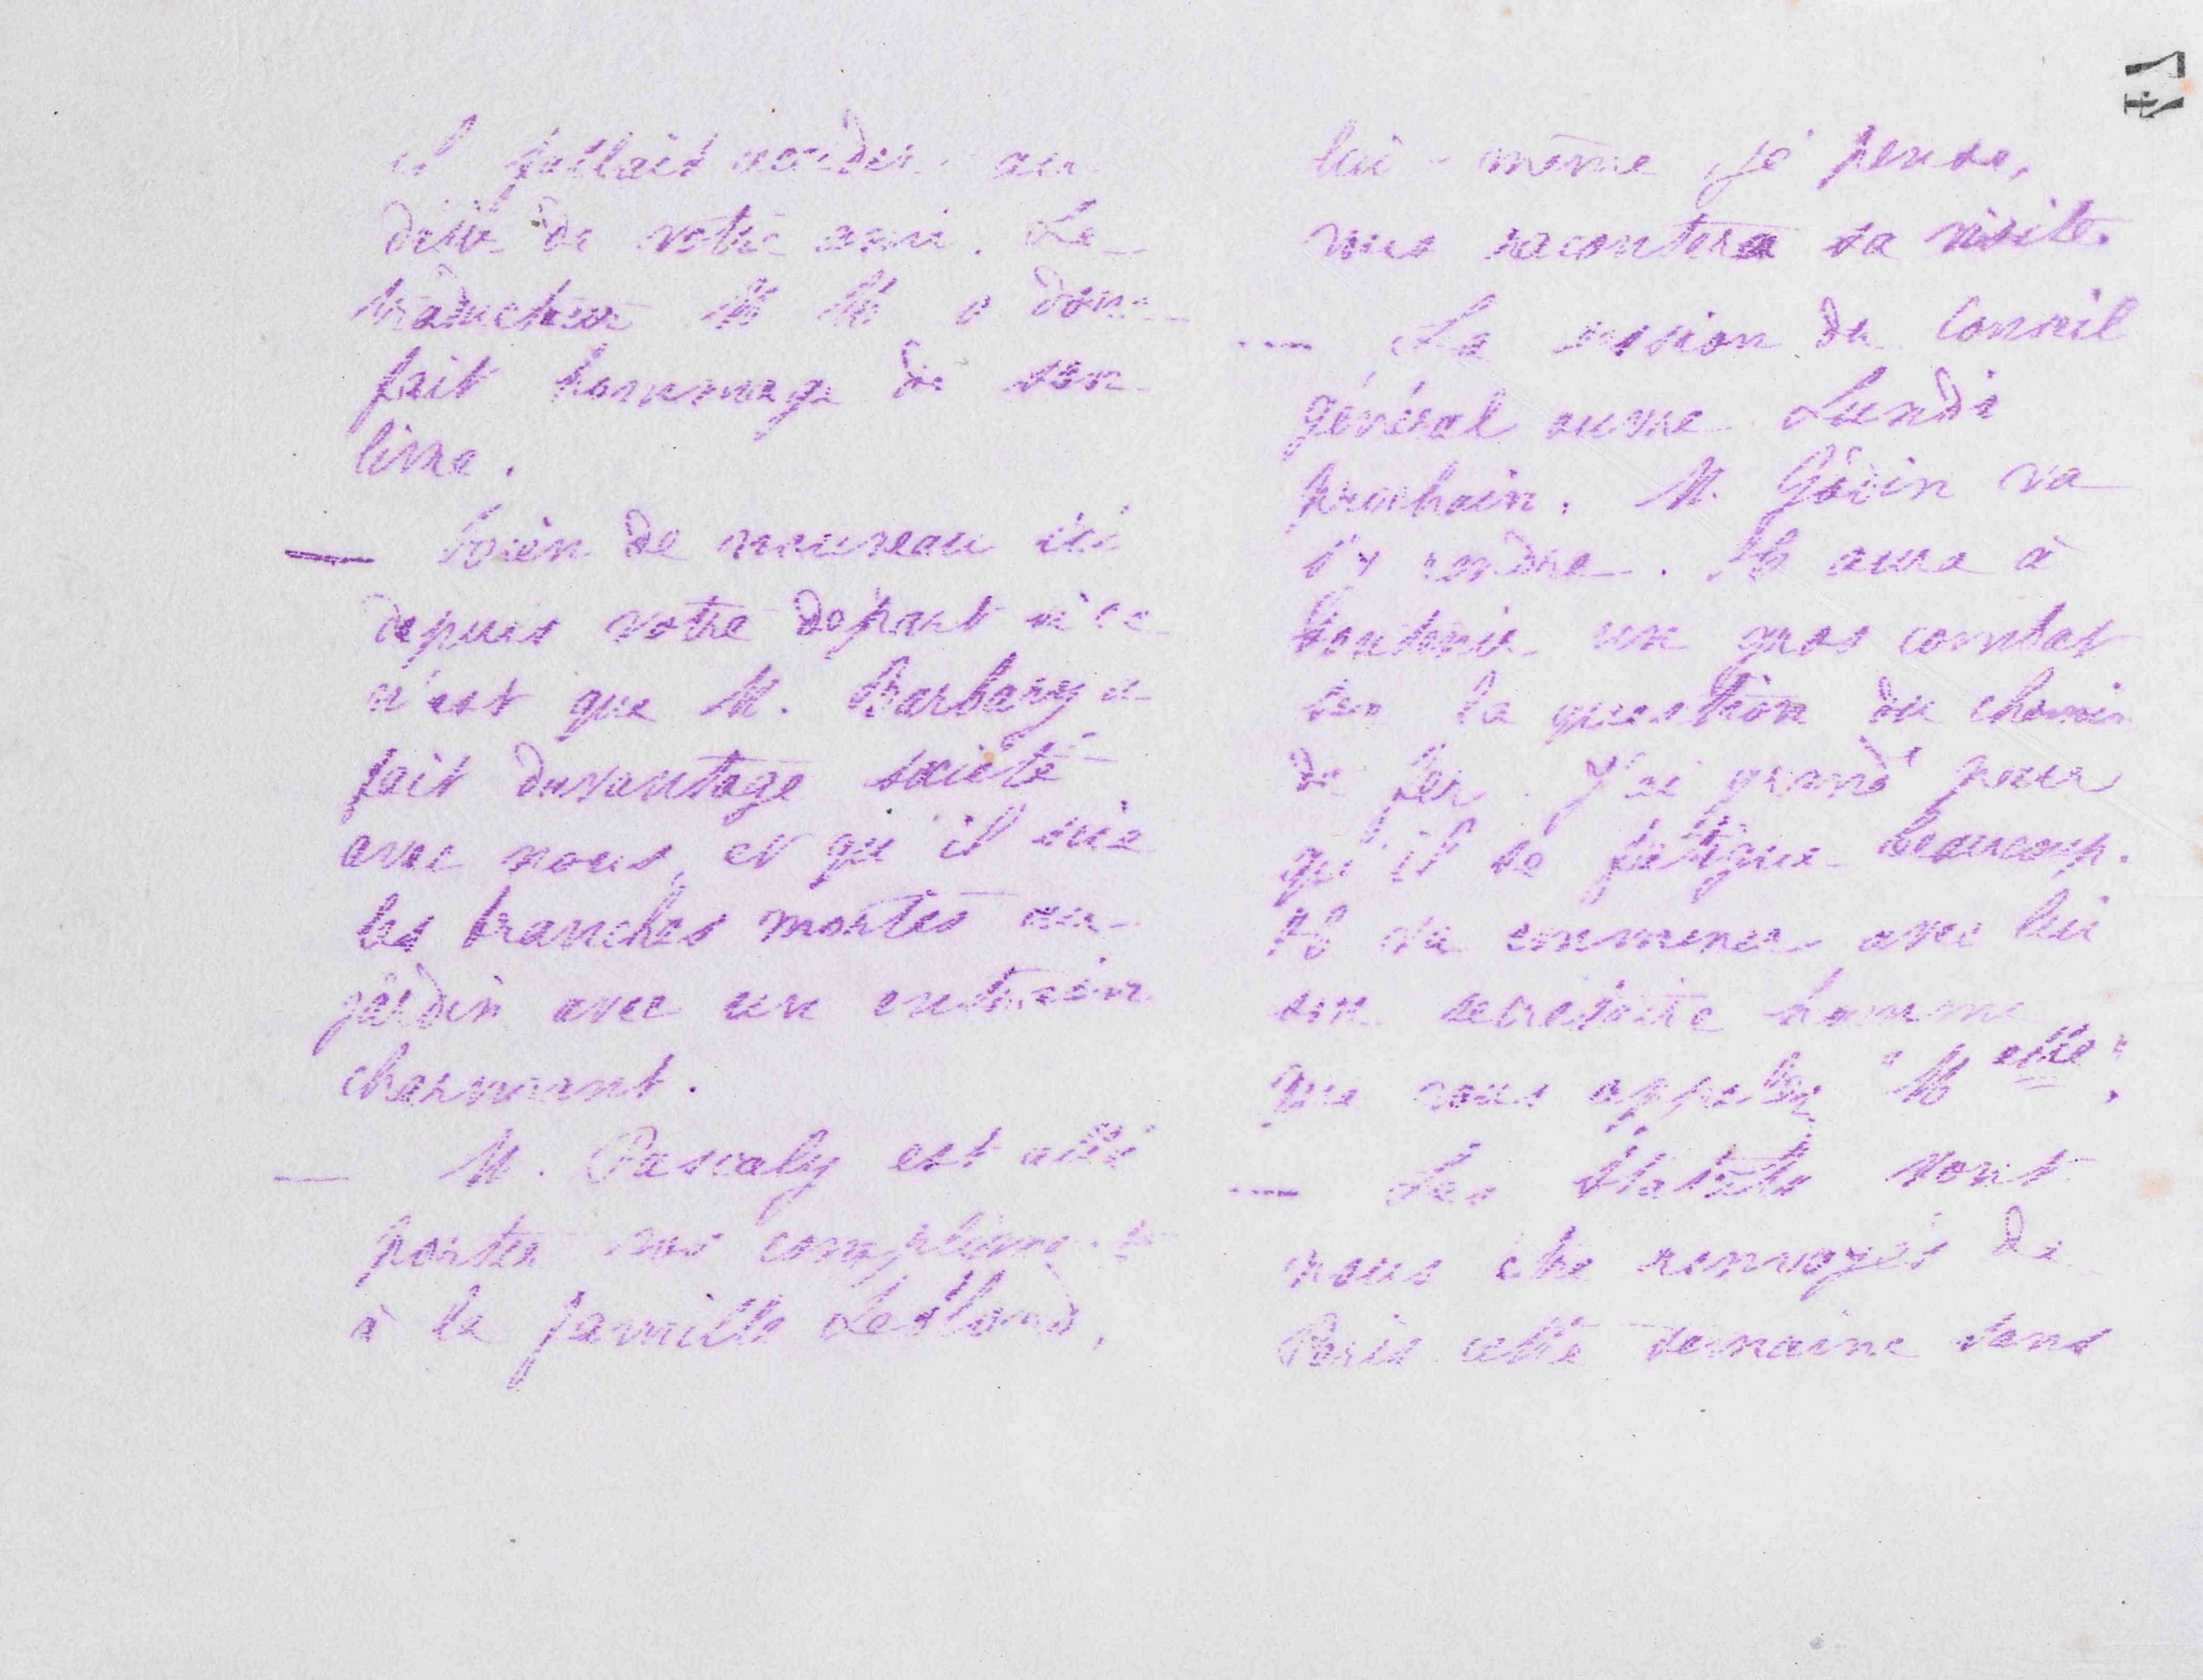 il fallait accéder au
désir de votre ami. Le
traducteur M. M. a donc
fait hommage de son
livre.
— Rien de nouveau ici
depuis votre départ si ce
n'est que M. Barbary a
fait davantage société
avec nous, et qu'il scie
les branches mortes au
jardin avec un entrain
charmant.
— M. Pascaly est allé
porter nos compliments
à la famille Leblond,
lui-même, je pense,
vous racontera sa visite.
— La session du Conseil
général ouvre Lundi
prochain. M. Godin va
s'y rendre. Il aura à
soutenir un gros combat
sur la question du chemin
de fer. J'ai grand peur
qu'il se fatigue beaucoup.
Il va emmener avec lui
son secrétaire homme
que vous appelez "Melle".
— Les Statuts vont
nous être renvoyés de
Paris cette semaine sans
47